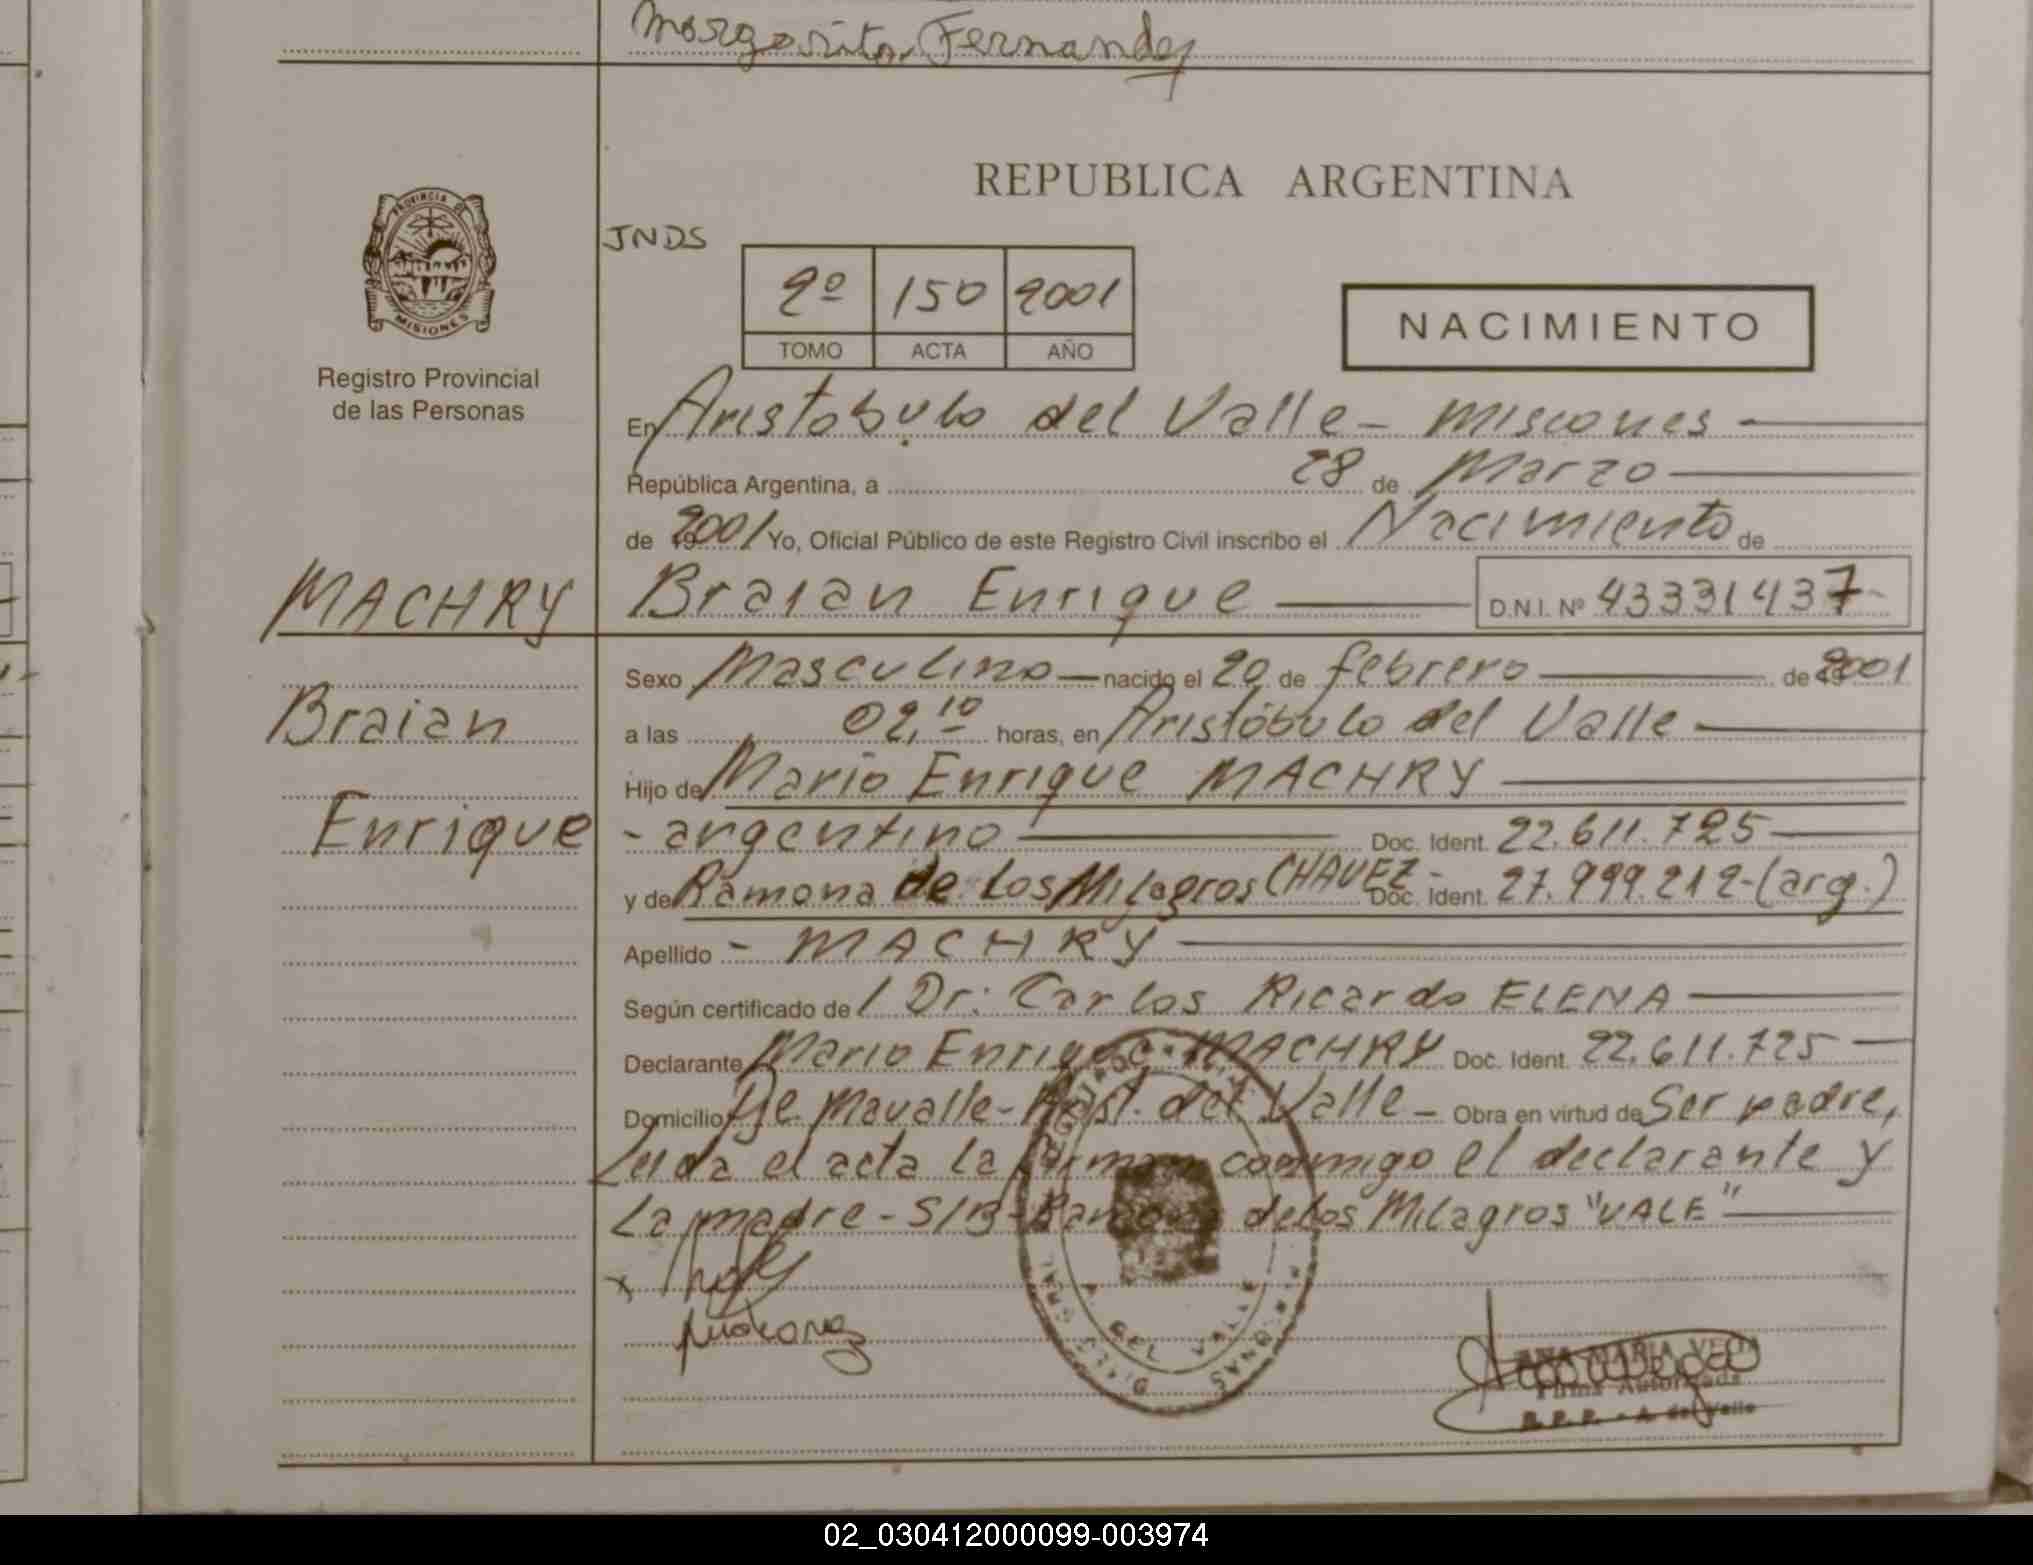 Margarita Fernandez
REPUBLICA ARGENTINA
PROVINCIA DE
MISIONES
Registro Provincial
de las Personas
JNDS
2º 150 2001
TOMO ACTA AÑO
NACIMIENTO
En Aristobulo del Valle - Misiones
República Argentina, a 28 de Marzo
de 2001 Yo, Oficial Público de este Registro Civil inscribo el Nacimiento de
MACHRY Braian Enrique D.N.I. Nº 43331437-
Sexo Masculino nacido el 20 de febrero de 2001
Braian
a las 02,10 horas, en Aristóbulo del Valle
Hijo de Mario Enrique MACHRY
Enrique
- argentino Doc. Ident. 22.611.725
y de Ramona de Los Milagros CHAVEZ - Doc. Ident. 27.999.212-(arg.)
Apellido - MACHRY
Según certificado de / Dr: Carlos Ricardo ELENA
Declarante Mario Enrique MACHRY Doc. Ident. 22.611.725
Domicilio Mavalle- Arist. del Valle - Obra en virtud de Ser padre,
Leida el acta la firman conmigo el declarante y
La madre - S/B - Ramona de los Milagros "VALE"
x
A. DEL VALLE
ANA MARIA
Firma Autorizada
R.P.P. - A. del Valle
02_030412000099-003974